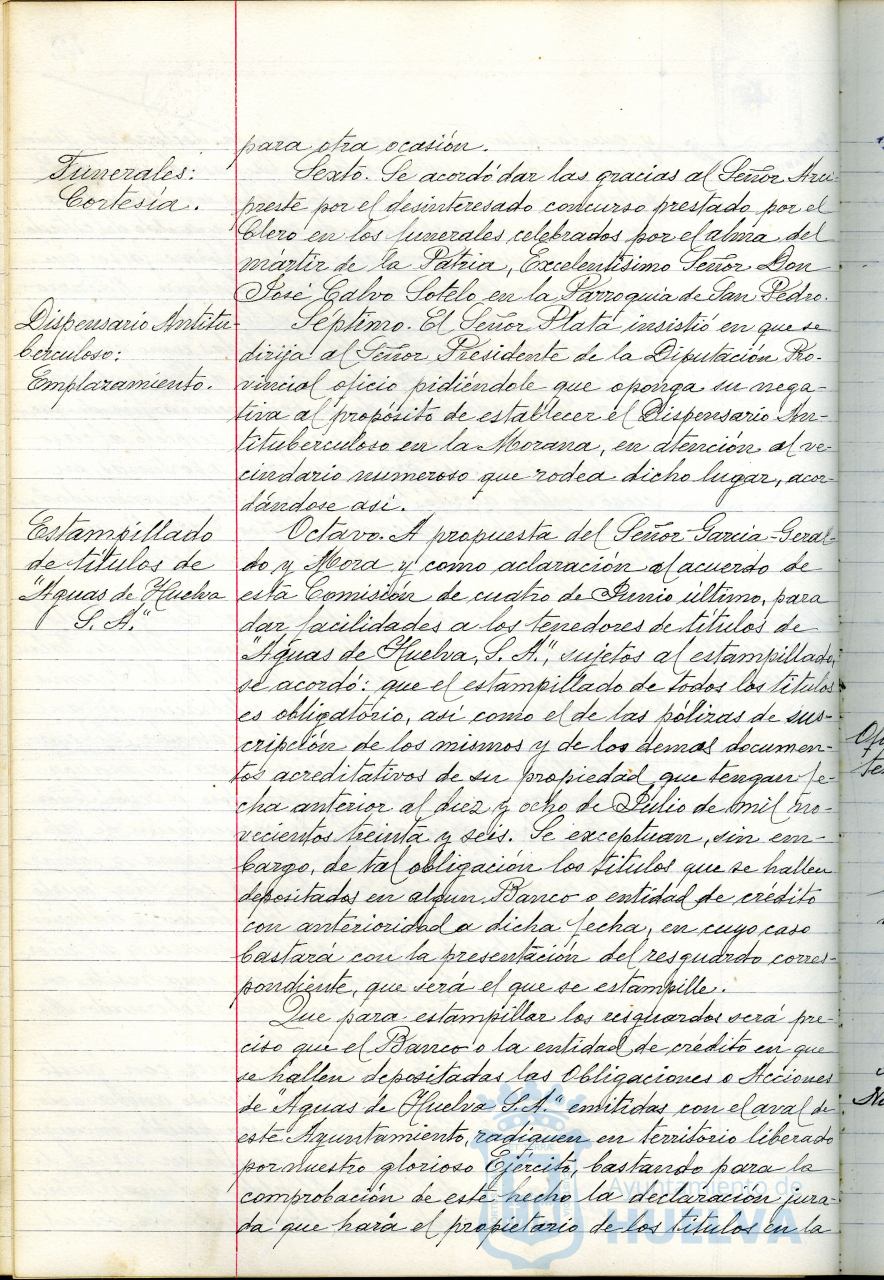 para otra ocasión.
Funerales:
Cortesía.
Sexto. Se acordó dar las gracias al Señor Arci-
preste por el desinteresado concurso prestado por el
Clero en los funerales celebrados por el alma del
mártir de la Patria, Excelentísimo Señor Don
José Calvo Sotelo en la Parroquia de San Pedro.
Dispensario Antitu-
berculoso:
Emplazamiento.
Séptimo. El Señor Plata insistió en que se
dirija al Señor Presidente de la Diputación Pro-
vincial oficio pidiéndole que oponga su nega-
tiva al propósito de establecer el Dispensario An-
tituberculoso en la Morana, en atención al ve-
cindario numeroso que rodea dicho lugar, acor-
dándose así.
Estampillado
de títulos de
"Aguas de Huelva
S. A."
Octavo. A propuesta del Señor García-Geral-
do y Mora y como aclaración al acuerdo de
esta Comisión de cuatro de Junio último, para
dar facilidades a los tenedores de títulos de
"Aguas de Huelva, S. A.", sujetos al estampillado,
se acordó: que el estampillado de todos los títulos
es obligatorio, así como el de las pólizas de sus-
cripción de los mismos y de los demas documen-
tos acreditativos de su propiedad que tengan fe-
cha anterior al diez y ocho de Julio de mil no-
vecientos treinta y seis. Se exceptuan, sin em-
bargo, de tal obligación los titulos que se hallen
depositados en algun Banco o entidad de crédito
con anterioridad a dicha fecha, en cuyo caso
bastará con la presentación del resguardo corres-
pondiente, que será el que se estampille.
Que para estampillar los resguardos será pre-
ciso que el Banco o la entidad de crédito en que
se hallen depositadas las Obligaciones o Acciones
de "Aguas de Huelva S.A." emitidas con el aval de
este Ayuntamiento, radiquen en territorio liberado
por nuestro glorioso Ejército, bastando para la
comprobación de este hecho la declaración jura-
da que hará el propietario de los títulos en la
Ayuntamiento de
HUELVA